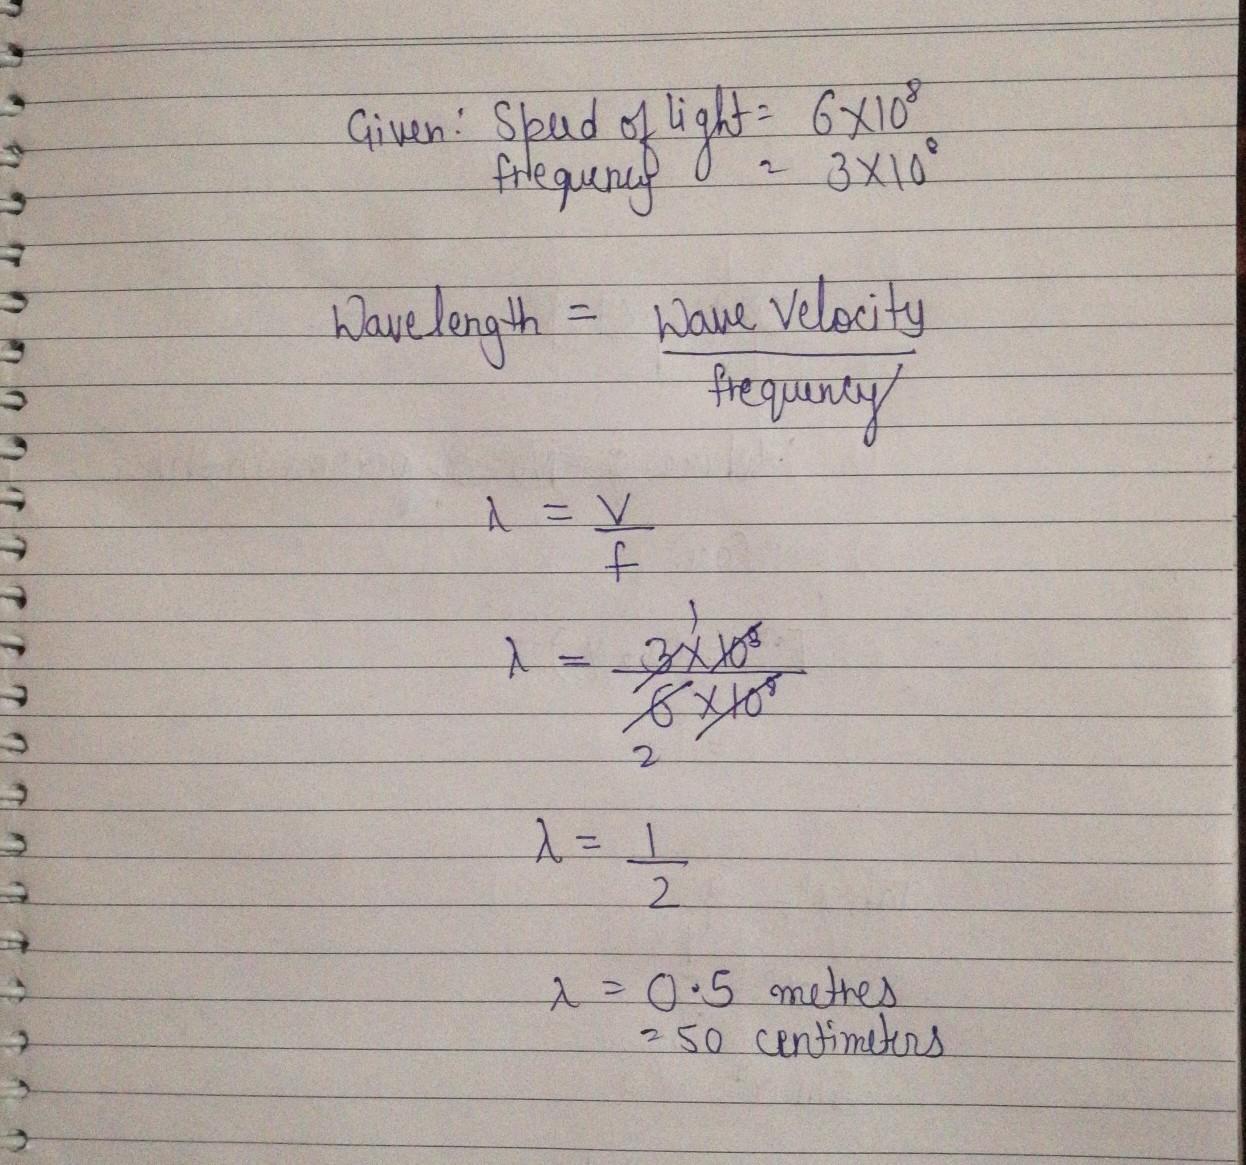 Given: Speed of light = 6×10⁸
frequency = 3×10⁸
Wavelength = Wave Velocity
frequency
λ = V
f
1
λ = 3×10⁸
6×10⁸
2
λ = 1
2
λ = 0.5 metres
= 50 centimeters